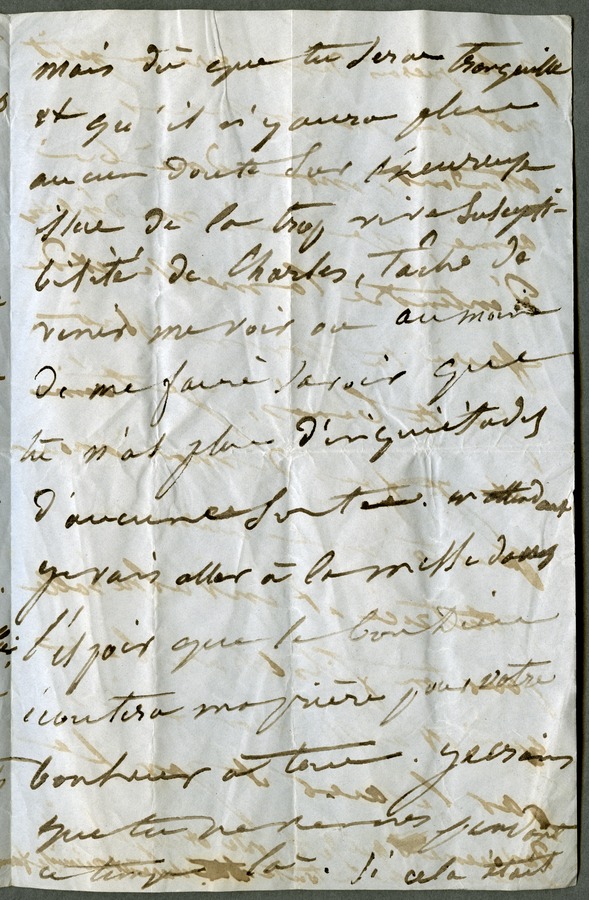 mais dis que tu seras tranquille
et qu'il n'y aura plus
aucun doute sur l'heureuse
issue de la trop vive suscepti-
bilité de Charles, Tache de
venir me voir ou au moins
de me faire savoir que
tu n'as plus d'inquiétudes
d'aucune sorte. en attendant
je vais aller à la messe dans
l'espoir que le bon Dieu
écoutera ma prière pour votre
bonheur à tous. je crains
que tu ne viennes pendant
ce temps là. si cela était